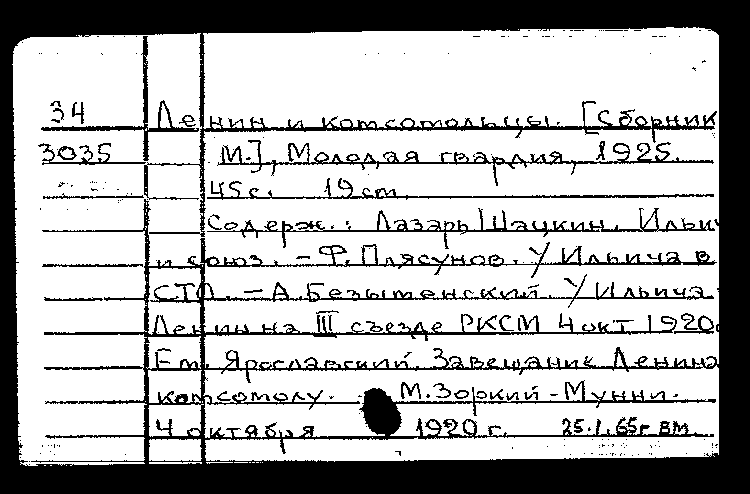 34 Ленин и комсомольцы. [Сборник
3035 М.], Молодая гвардия, 1925.
45с. 19cm.
Содерж.: Лазарь Шацкин. Ильич
и союз. - Ф. Плясунов. У Ильича в
СТО. - А. Безыменский. У Ильича
Ленин на III съезде РКСМ 4 окт 1920г
Ем. Ярославский. Завещание Ленина
комсомолу. М. Зоркий - Мунни.
4 октября 1920 г. 25.1.65г вм